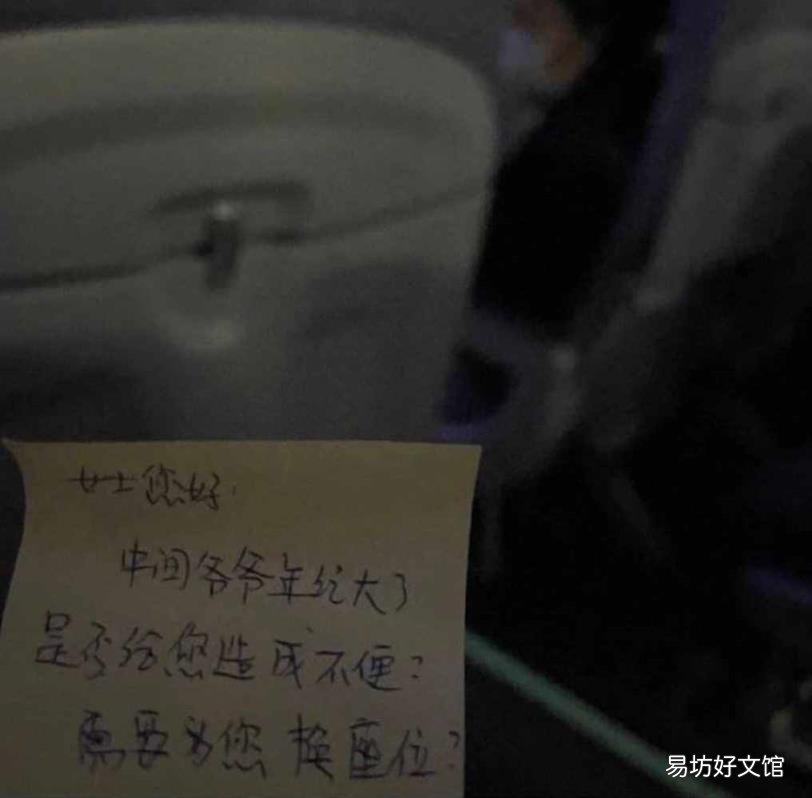 女士您好.
中间爷爷年纪大了
是否给您造成不便?
需要为您换座位?
易坊好文馆